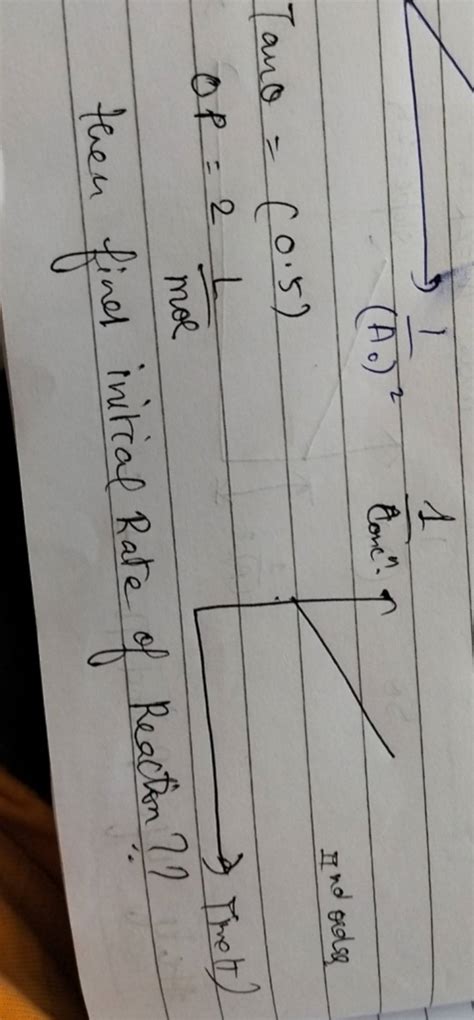 1
(A₀)²
1
Concⁿ.
IInd order
Time(t)
Tanθ = (0.5)
OP = 2 L
mol
then find initial Rate of Reaction ??